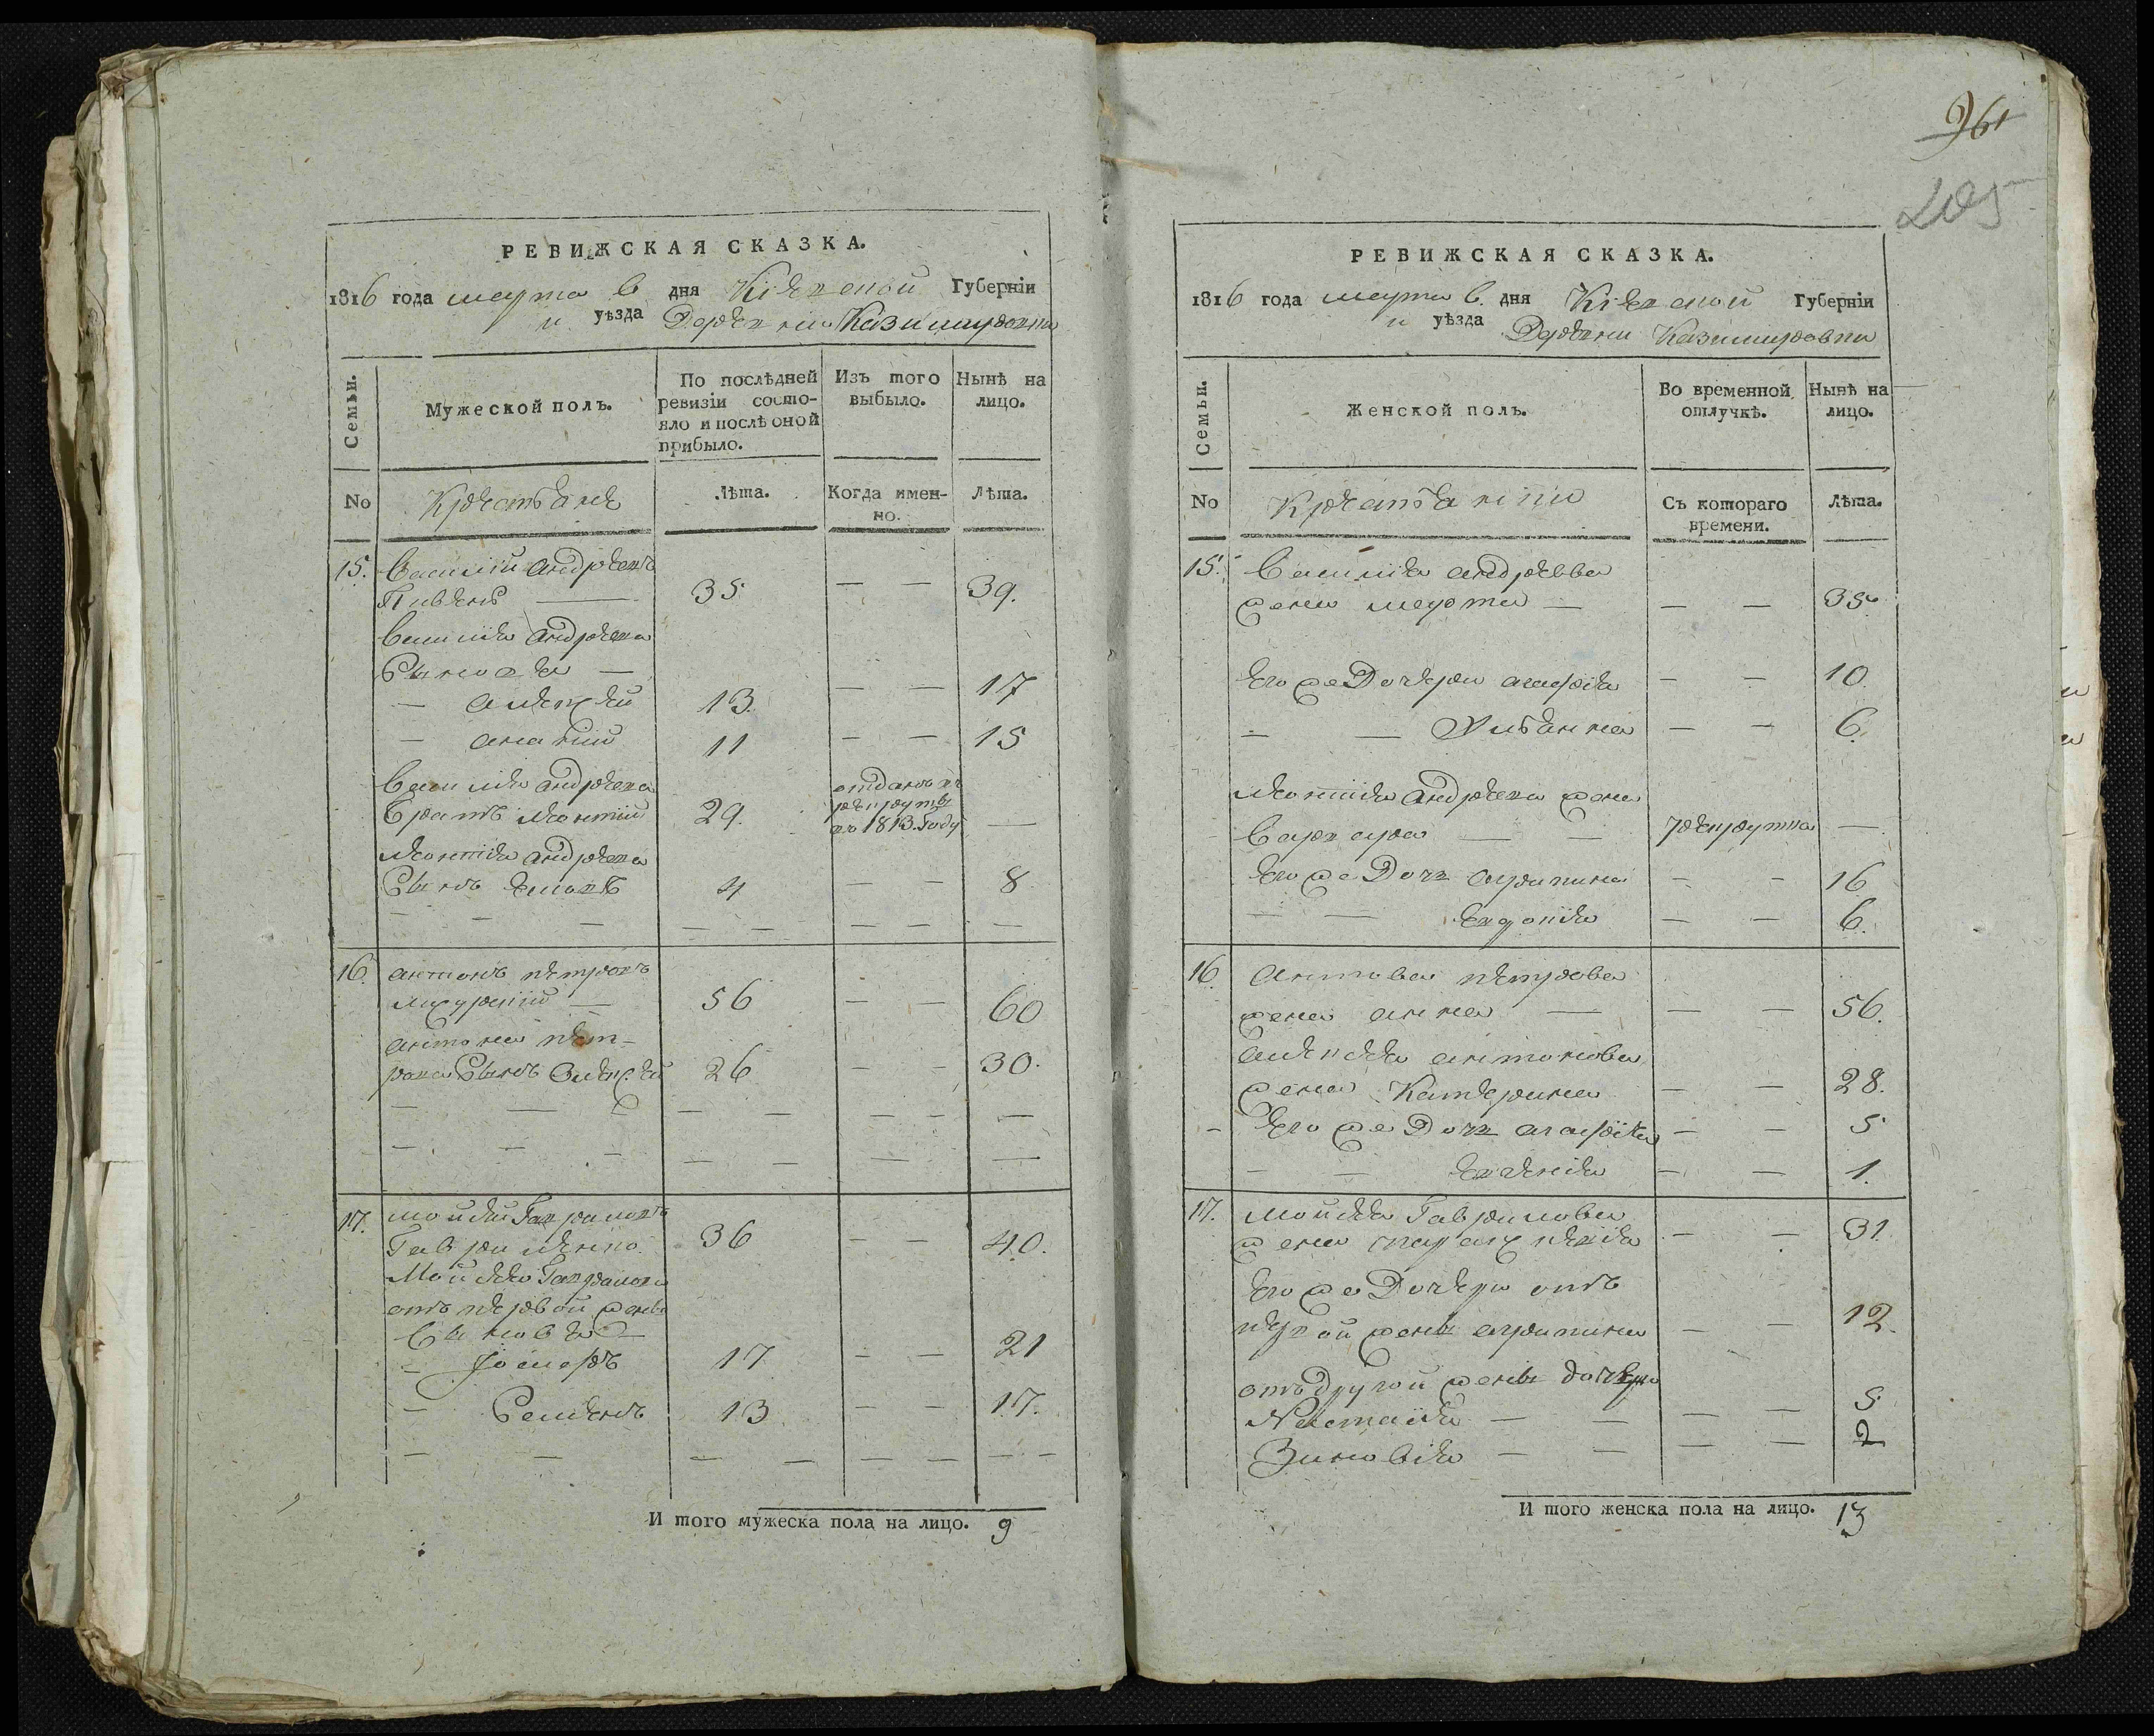 РЕВИЖСКАЯ СКАЗКА.
1816 года марта 6 дня Кіевской Губерніи
и уѣзда Деревни Казимировки
Семьи.
Мужеской полъ.
По послѣдней ревизіи состояло и послѣ оной прибыло.
Изъ того выбыло.
Нынѣ на лицо.
No
Крестьяне
Лѣта.
Когда имен-
но.
Лѣта.
15. Василій андреевъ
Пивень — 35 — — 39.
василія андреева
Сыновья —
— алексѣй 13. — — 17
— ананій 11 — — 15
василія андреева
братъ леонтій 29. отданъ въ рекруты въ 1813. Году —
леонтія андреева
Сынъ 4 — — 8
16. антонъ петровъ
56 — — 60
антона пет-
рова Сынъ Алексѣй 26 — — 30.
17. мойсей Гавриловъ
Гавриленко 36 — — 40.
Мойсея Гаврилова
отъ первой жены
Сыновья
— Іосифъ 17 — — 21
— Семенъ 13 — — 17.
И того мужеска пола на лицо. 9
961
205
РЕВИЖСКАЯ СКАЗКА.
1816 года марта 6. дня Кіевской Губерніи
и уѣзда
Деревни Казимировки
Семьи.
Женской полъ.
Во временной отлучкѣ.
Нынѣ на лицо.
No
Крестьянки
Съ котораго
времени.
Лѣта.
15. Василія андреева
жена марта — — — 35
его же Дочери агафія — — 10.
— — Ульанна — — 6.
леонтія андреева жена
варвара — — рекрутка —
его же Дочь агрипина — — 16
— — евдокія — — 6.
16. Антона петрова
жена анна — — — 56.
алексея антонова
жена Катерина — — 28.
— его же Дочь агафія — — 5
— — евгенія — — 1.
17. мойсея Гаврилова
жена — — 31.
его же Дочери отъ
первой жены агрипина — — 12.
отъ другой жены дочери
Настасія — — — — 5.
Зиновія — — — — 2
И того женска пола на лицо. 13